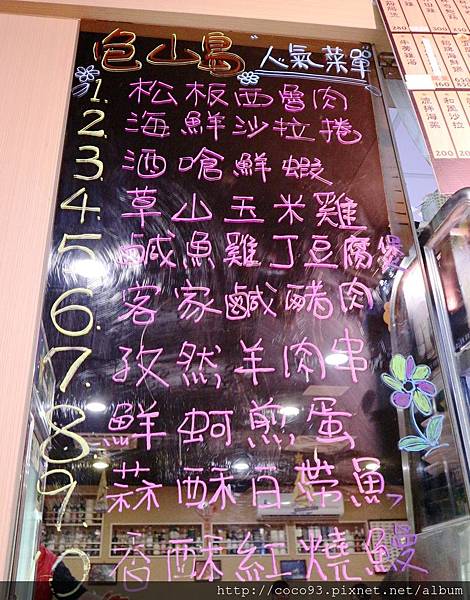 色山島 人氣菜單
1. 松板西魯肉
2. 海鮮沙拉捲
3. 酒嗆鮮蝦
4. 草山玉米雞
5. 鹹魚雞丁豆腐煲
6. 客家鹹豬肉
7. 孜然羊肉串
8. 鮮蚵煎蛋
9. 蒜酥白帶魚
10 香酥紅燒鰻
200
200
http://coco93.pixnet.net/album